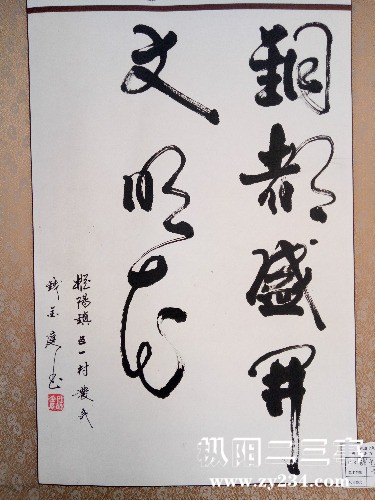 銅都盛開
文明花
樅陽鎮五一村農民
枞阳二三事
www.zy234.com